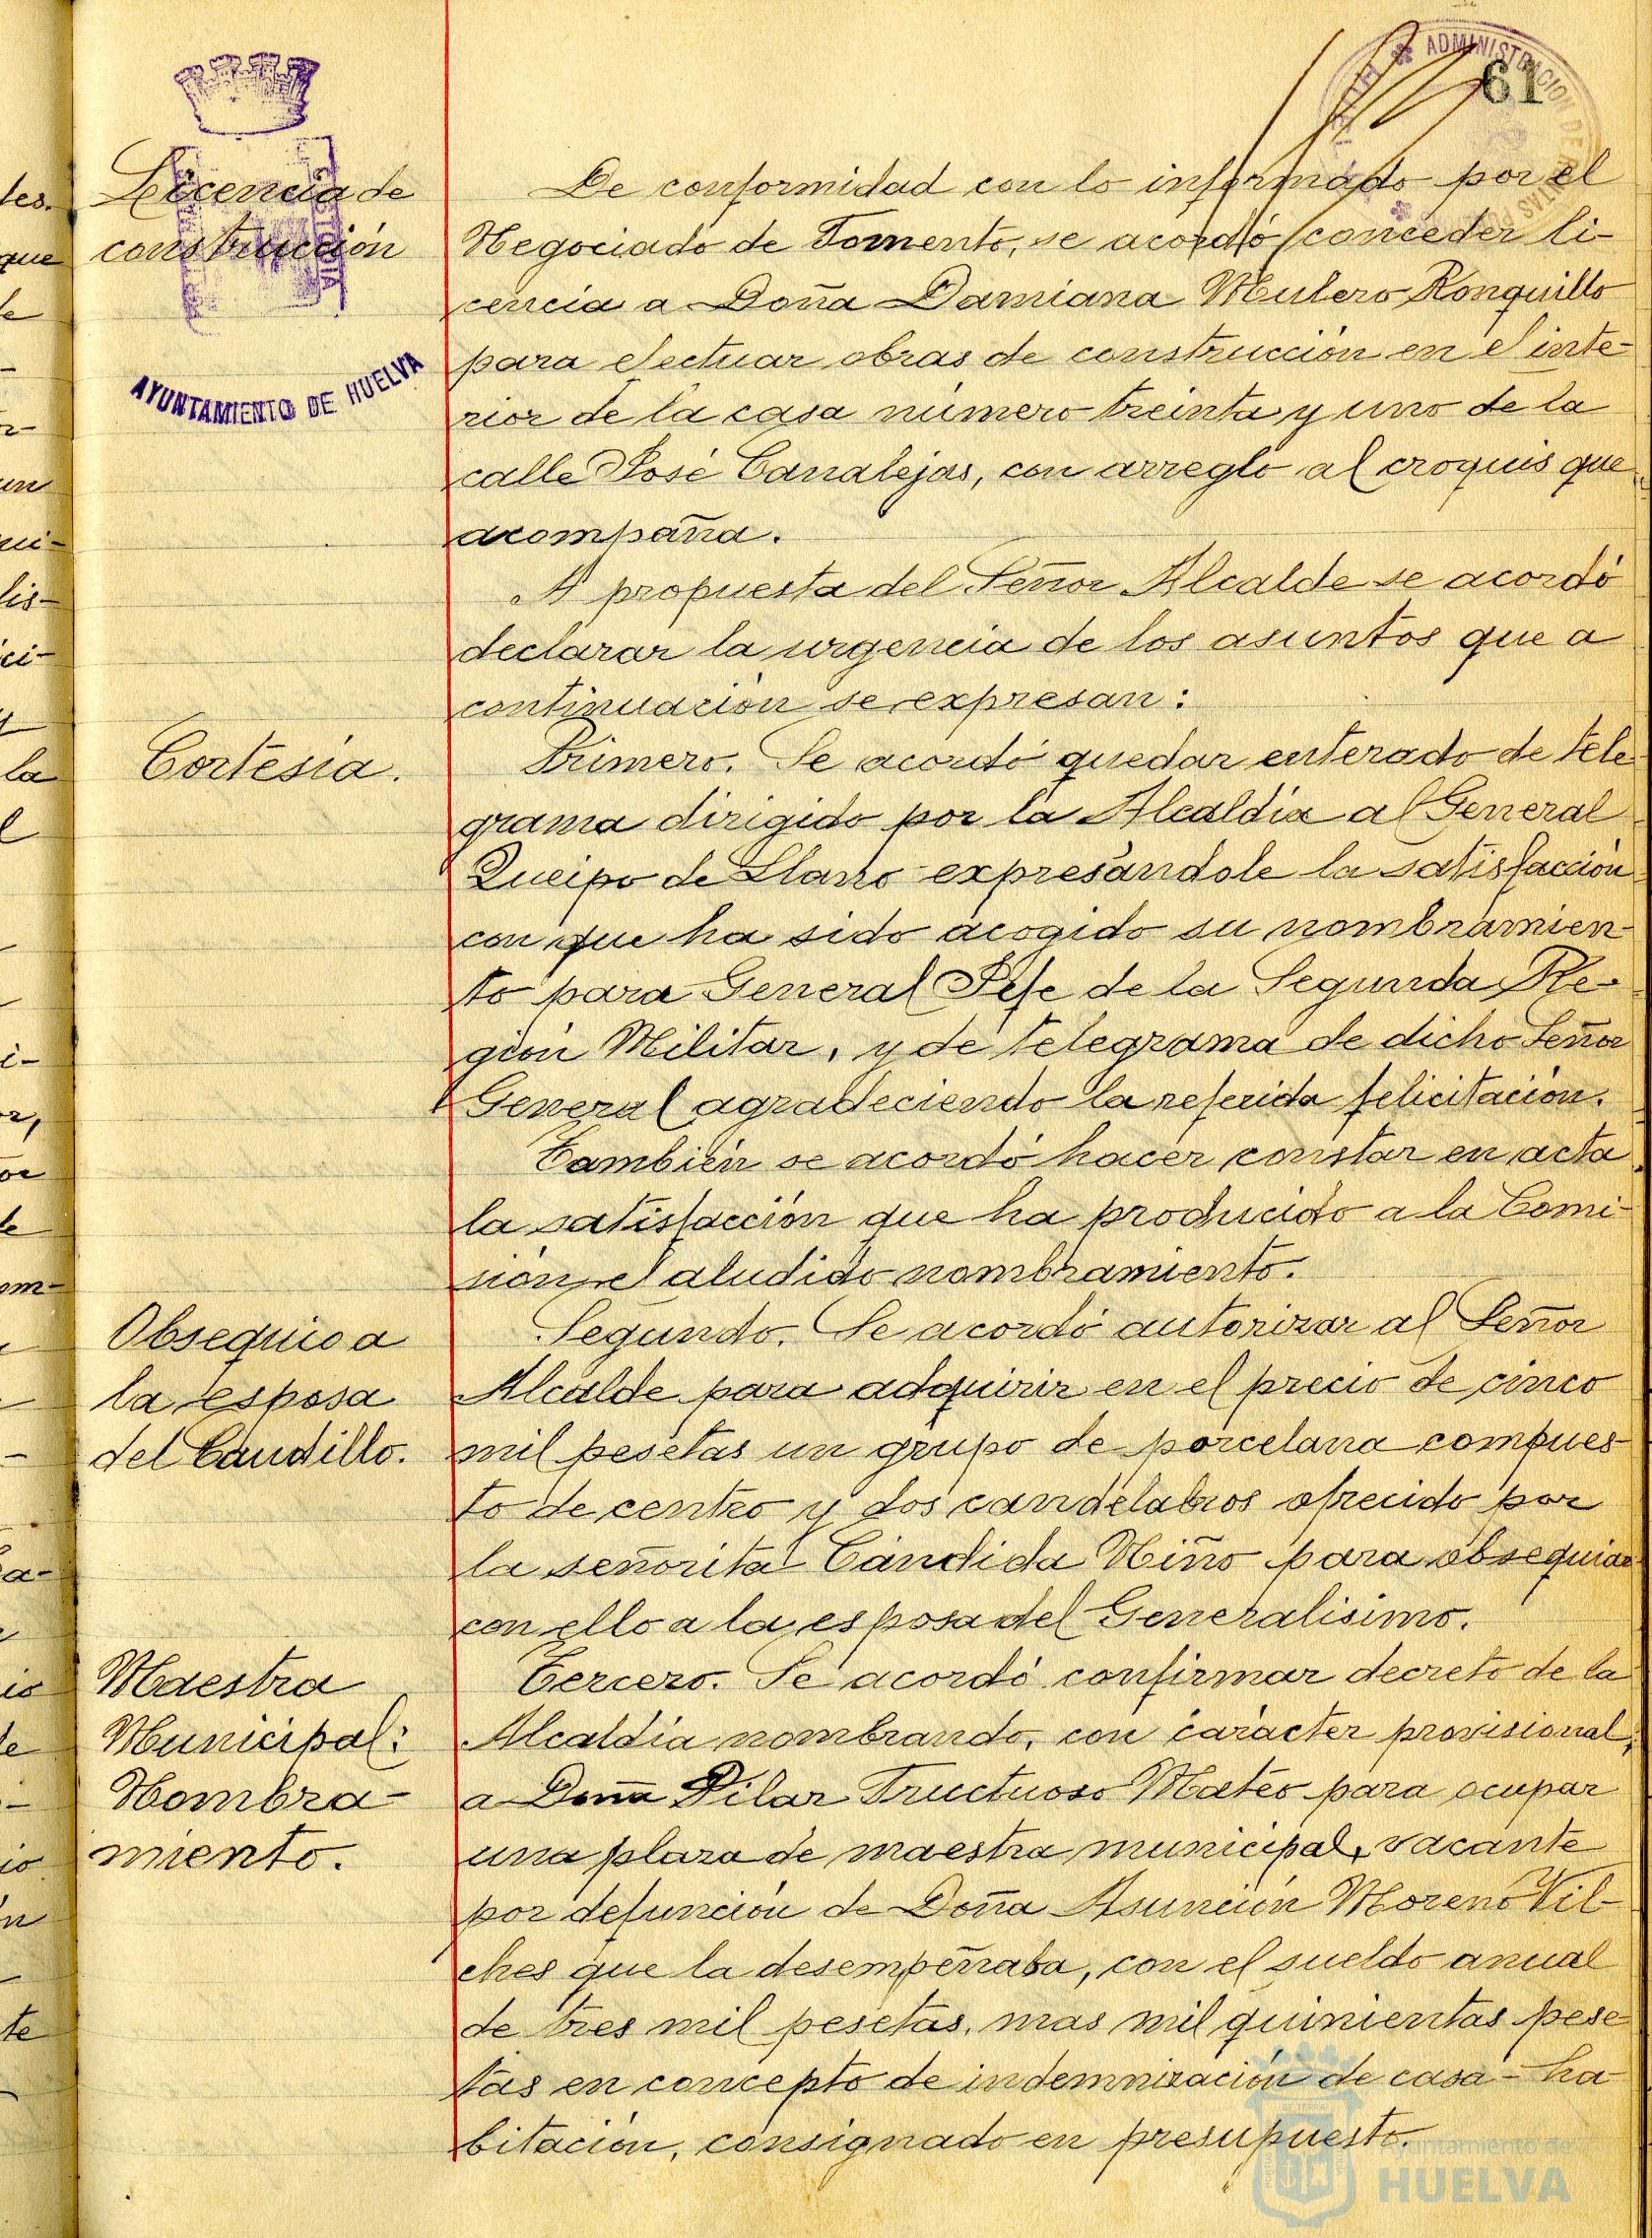 61
ADMINISTRACION DE RENTAS
AYUNTAMIENTO DE HUELVA
Licencia de
construcción
De conformidad con lo informado por el
Negociado de Fomento, se acordó conceder li-
cencia a Doña Damiana Mulero Ronquillo
para efectuar obras de construcción en el inte-
rior de la casa número treinta y uno de la
calle José Canalejas, con arreglo al croquis que
acompaña.
A propuesta del Señor Alcalde se acordó
declarar la urgencia de los asuntos que a
continuación se expresan:
Cortesía.
Primero. Se acordó quedar enterado de tele
grama dirigido por la Alcaldía al General
Queipo de Llano expresándole la satisfacción
con que ha sido acogido su nombramien-
to para General Jefe de la Segunda Re-
gión Militar, y de telegrama de dicho Señor
General agradeciendo la referida felicitación.
También se acordó hacer constar en acta
la satisfacción que ha producido a la Comi-
sión el aludido nombramiento.
Obsequio a
la esposa
del Caudillo.
Segundo. Se acordó autorizar al Señor
Alcalde para adquirir en el precio de cinco
mil pesetas un grupo de porcelana compues-
to de centro y dos candelabros ofrecido por
la señorita Cándida Niño para obsequiar
con ello a la esposa del Generalísimo.
Maestra
Municipal:
Nombra-
miento.
Tercero. Se acordó confirmar decreto de la
Alcaldía nombrando, con carácter provisional,
a Doña Pilar Fructuoso Mateo para ocupar
una plaza de maestra municipal, vacante
por defunción de Doña Asunción Moreno Vil-
ches que la desempeñaba, con el sueldo anual
de tres mil pesetas, mas mil quinientas pese-
tas en concepto de indemnización de casa-ha-
bitación, consignado en presupuesto.
Ayuntamiento de
HUELVA